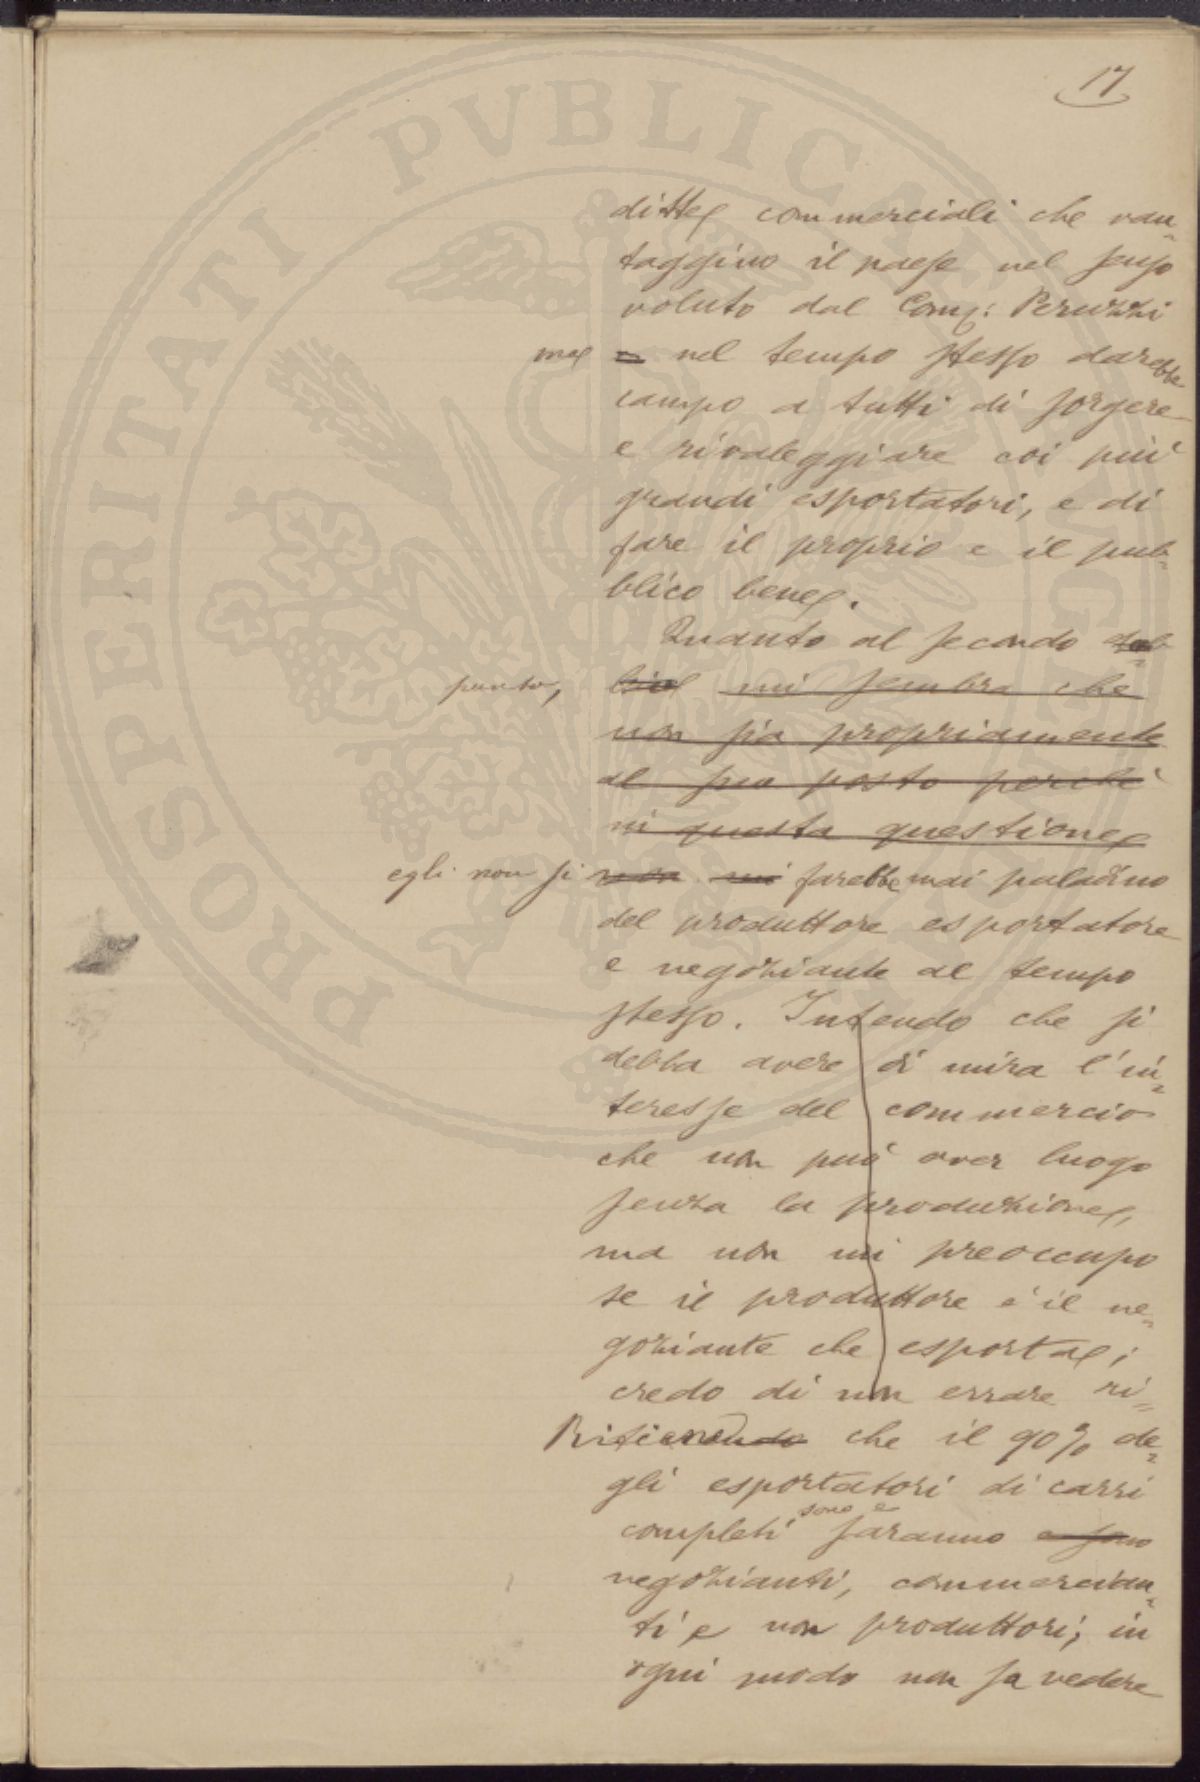 17
PROSPERITATI PVBLICAE AVGENDAE
ditte commerciali che van-
taggino il paese nel senso
voluto dal Cons: Peruzzi
ma e nel tempo stesso darebbe
campo a tutti di sorgere
e rivaleggiare coi più
grandi esportatori, e di
fare il proprio e il pub-
blico bene.
Quanto al secondo dub-
punto, bio mi sembra che
non sia propriamente
al suo posto perchè
in questa questione
egli non si non mi farebbe mai paladino
del produttore esportatore
e negoziante al tempo
stesso. Intendo che si
debba avere di mira l'in-
teresse del commercio
che non può aver luogo
senza la produzione,
ma non mi preoccupo
se il produttore è il ne-
goziante che esporta;
credo di non errare ri-
Ritienendo che il 90% de-
gli esportatori di carri
sono e
completi saranno e sono
negozianti, commercian-
ti e non produttori; in
ogni modo non sa vedere